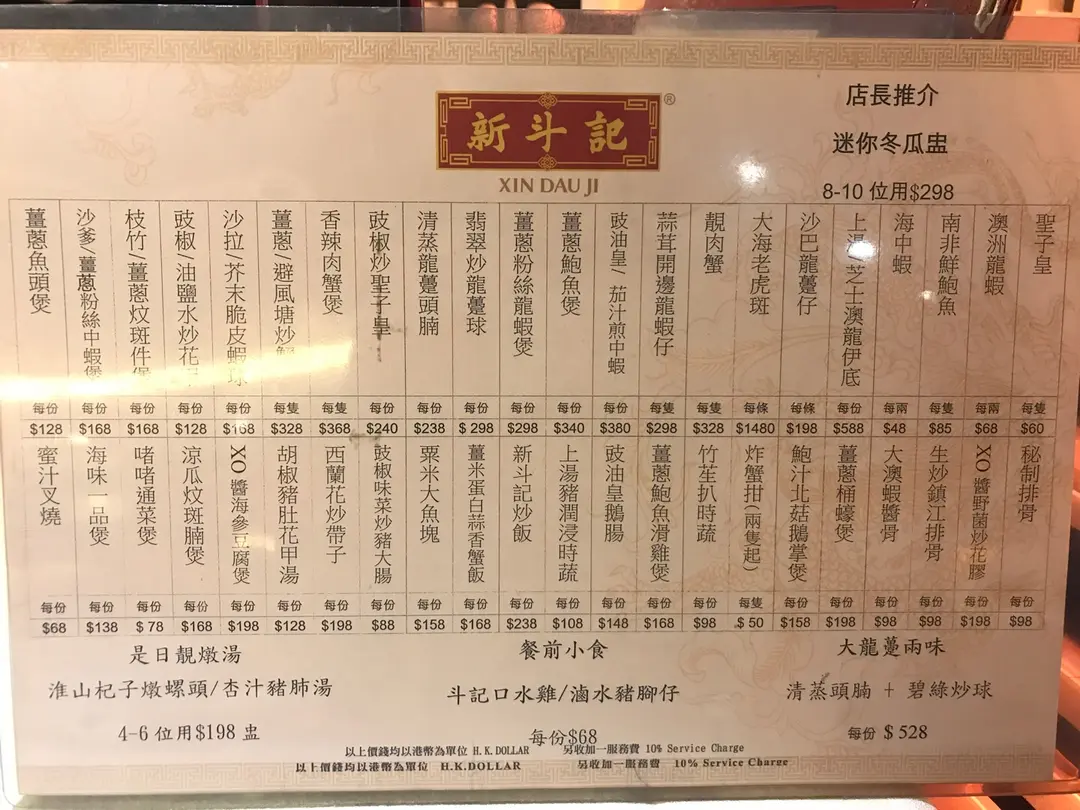 新斗記
®
XIN DAU JI
店長推介
迷你冬瓜盅
8-10 位用$298
聖子皇 每隻 $60
澳洲龍蝦 每兩 $68
南非鮮鮑魚 每隻 $85
海中蝦 每兩 $48
上湯/芝士澳龍伊底 每份 $588
沙巴龍躉仔 每條 $198
大海老虎斑 每條 $1480
靚肉蟹 每隻 $328
蒜茸開邊龍蝦仔 每隻 $298
豉油皇/茄汁煎中蝦 每份 $380
薑蔥鮑魚煲 每份 $340
薑蔥粉絲龍蝦煲 每份 $298
翡翠炒龍躉球 每份 $298
清蒸龍躉頭腩 每份 $238
豉椒炒聖子皇 每份 $240
香辣肉蟹煲 每隻 $368
薑蔥/避風塘炒蟹 每隻 $328
沙拉/芥末脆皮蝦球 每份 $168
豉椒/油鹽水炒花 每份 $128
枝竹/薑蔥炆斑件煲 每份 $168
沙爹/薑蔥粉絲中蝦煲 每份 $168
薑蔥魚頭煲 每份 $128
秘制排骨 每份 $98
XO醬野菌炒花膠 每份 $198
生炒鎮江排骨 每份 $98
大澳蝦醬骨 每份 $98
薑蔥桶蠔煲 每份 $198
鮑汁北菇鵝掌煲 每份 $158
炸蟹拑(兩隻起) 每隻 $50
竹笙扒時蔬 每份 $98
薑蔥鮑魚滑雞煲 每份 $168
豉油皇鵝腸 每份 $148
上湯豬潤浸時蔬 每份 $108
新斗記炒飯 每份 $238
薑米蛋白蒜香蟹飯 每份 $168
粟米大魚塊 每份 $158
豉椒味菜炒豬大腸 每份 $88
西蘭花炒帶子 每份 $198
胡椒豬肚花甲湯 每份 $128
XO醬海參豆腐煲 每份 $198
涼瓜炆斑腩煲 每份 $168
啫啫通菜煲 每份 $78
海味一品煲 每份 $138
蜜汁叉燒 每份 $68
是日靚燉湯
淮山杞子燉螺頭/杏汁豬肺湯
4-6 位用$198 盅
餐前小食
斗記口水雞/滷水豬腳仔
每份$68
大龍躉兩味
清蒸頭腩 + 碧綠炒球
每份 $528
以上價錢均以港幣為單位 H.K.DOLLAR 另收加一服務費 10% Service Charge
以上價錢均以港幣為單位 H.K.DOLLAR 另收加一服務費 10% Service Charge